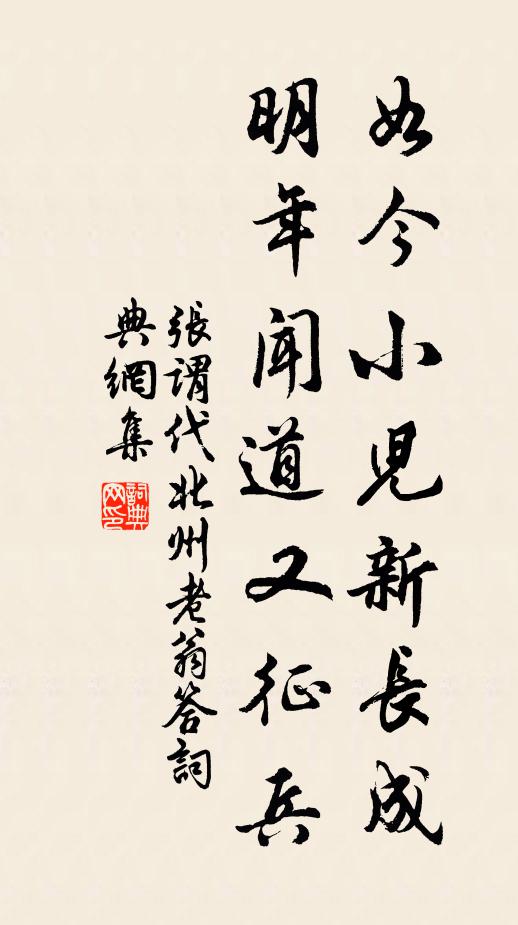 如今小兒新長成
明年聞道又征兵
張謂代北州老翁答詞
典網集
詞典
网印